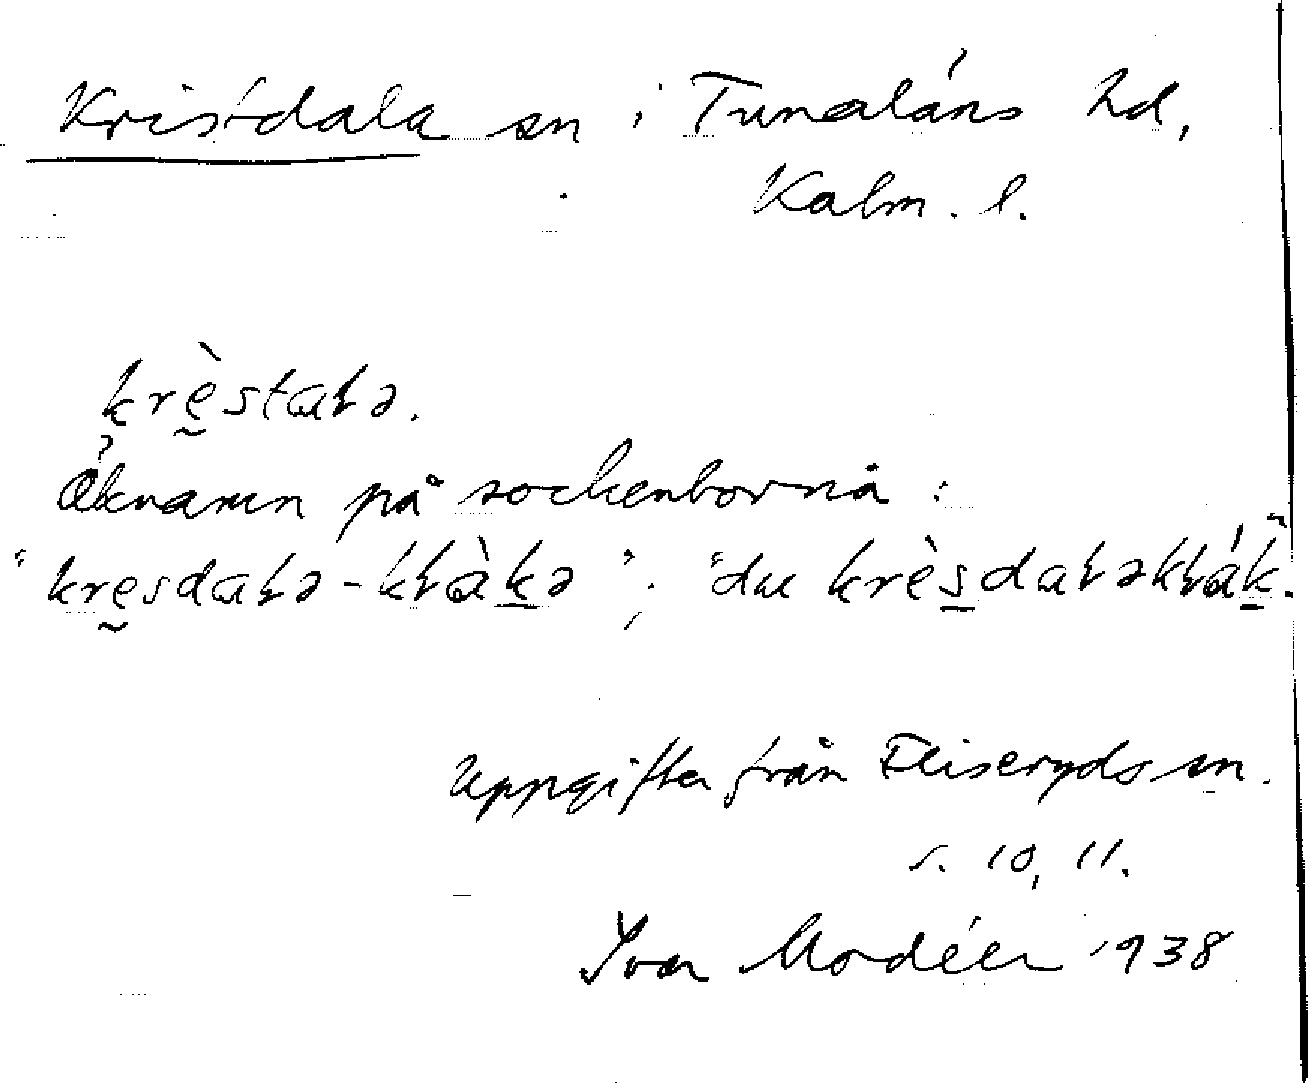 Kristdala sn i Tunaläns hd,
Kalm. l.
krḛ̀staɫə.
Öknamn på sockenborna:
"krḛsdaɫə-kɫàḵə"; "du krès̱daɫəkɫáḵ".
Uppgifter från Fliseryds sn.
s. 10, 11.
Ivar Modéer 1938